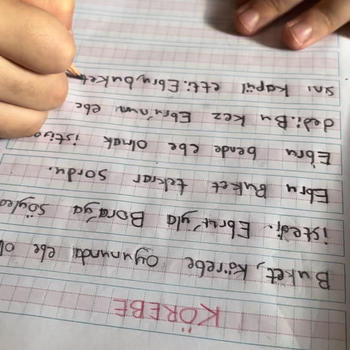 KÖREBE
Buket, Körebe Oyununda ebe
istedi. Ebru'yla Bora'ya
Ebru Buket tekrar sordu.
Ebru bende ebe olmak
dedi. Bu kez Ebru'nun ebe
sını kabul etti. Ebru, buket